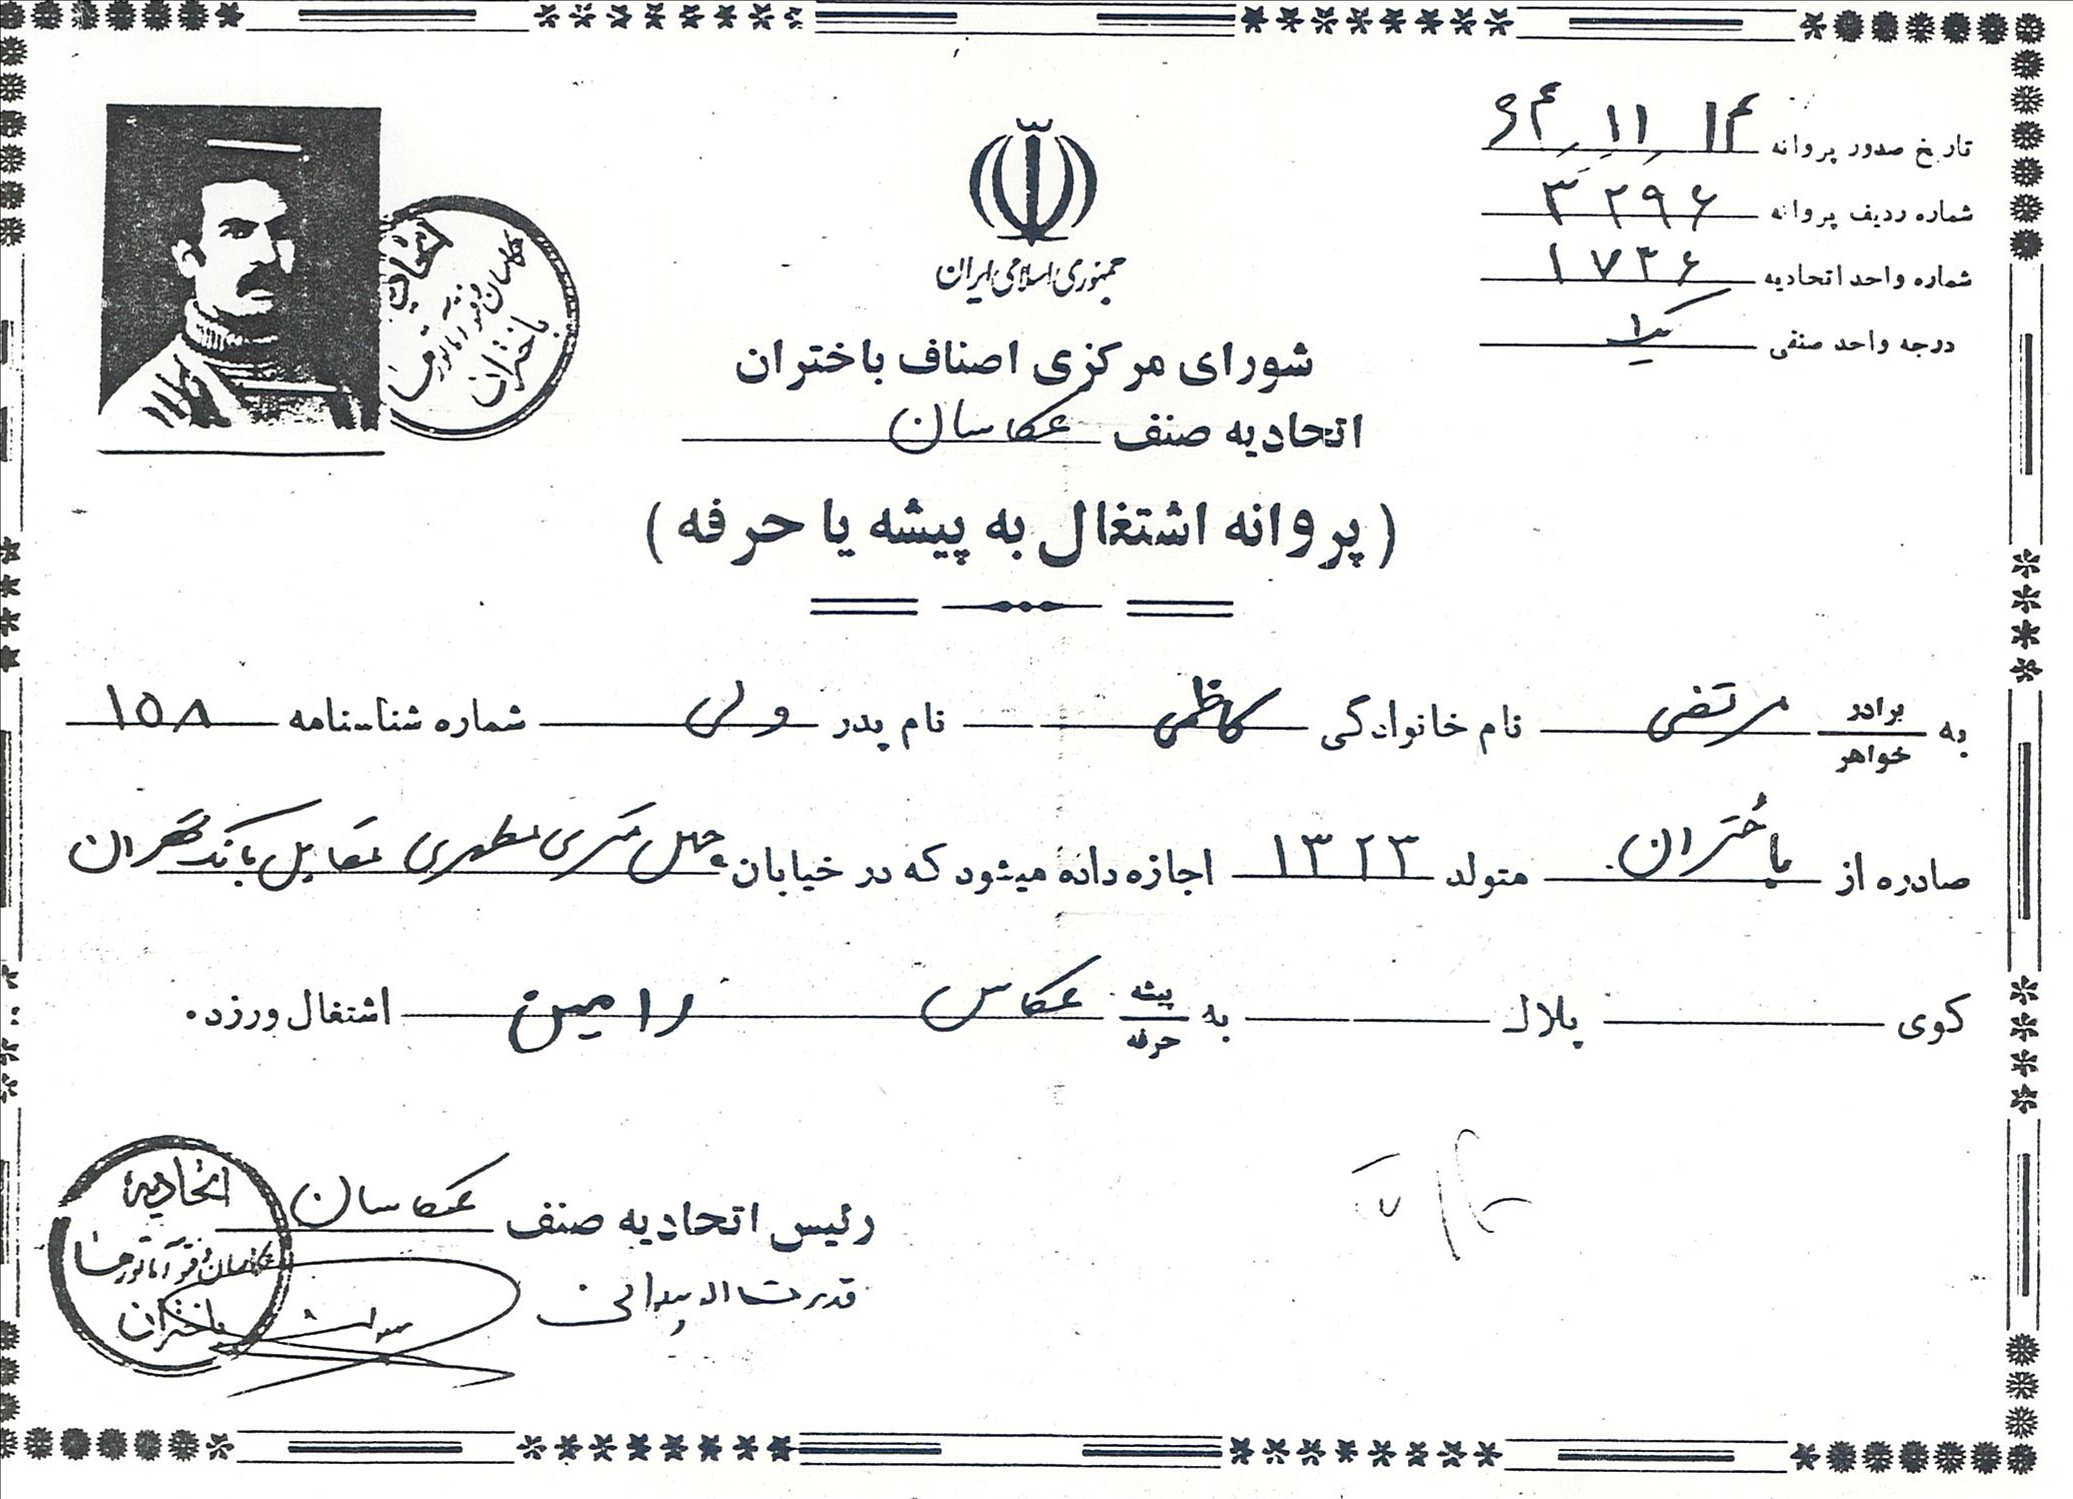 تاریخ صدور پروانه ۱۴ ، ۱۱ ، ۶۴
شماره ردیف پروانه ۳۲۹۶
شماره واحد اتحادیه ۱۷۳۶
درجه واحد صنفی یک
جمهوری اسلامی ایران
شورای مرکزی اصناف باختران
اتحادیه صنف عکاسان
( پروانه اشتغال به پیشه یا حرفه )
به برادر خواهر مرتضی نام خانوادگی کاظمی نام پدر ولی شماره شناسنامه ۱۵۸
صادره از باختران متولد ۱۳۲۳ اجازه داده میشود که در خیابان چهل متری مطهری مقابل بانک تهران
کوی پلاک به پیشه حرفه عکاس رامین اشتغال ورزد.
رئیس اتحادیه صنف عکاسان
اتحادیه
عکاسان و فتوآماتورها
باختران
اتحادیه
عکاسان
باختران